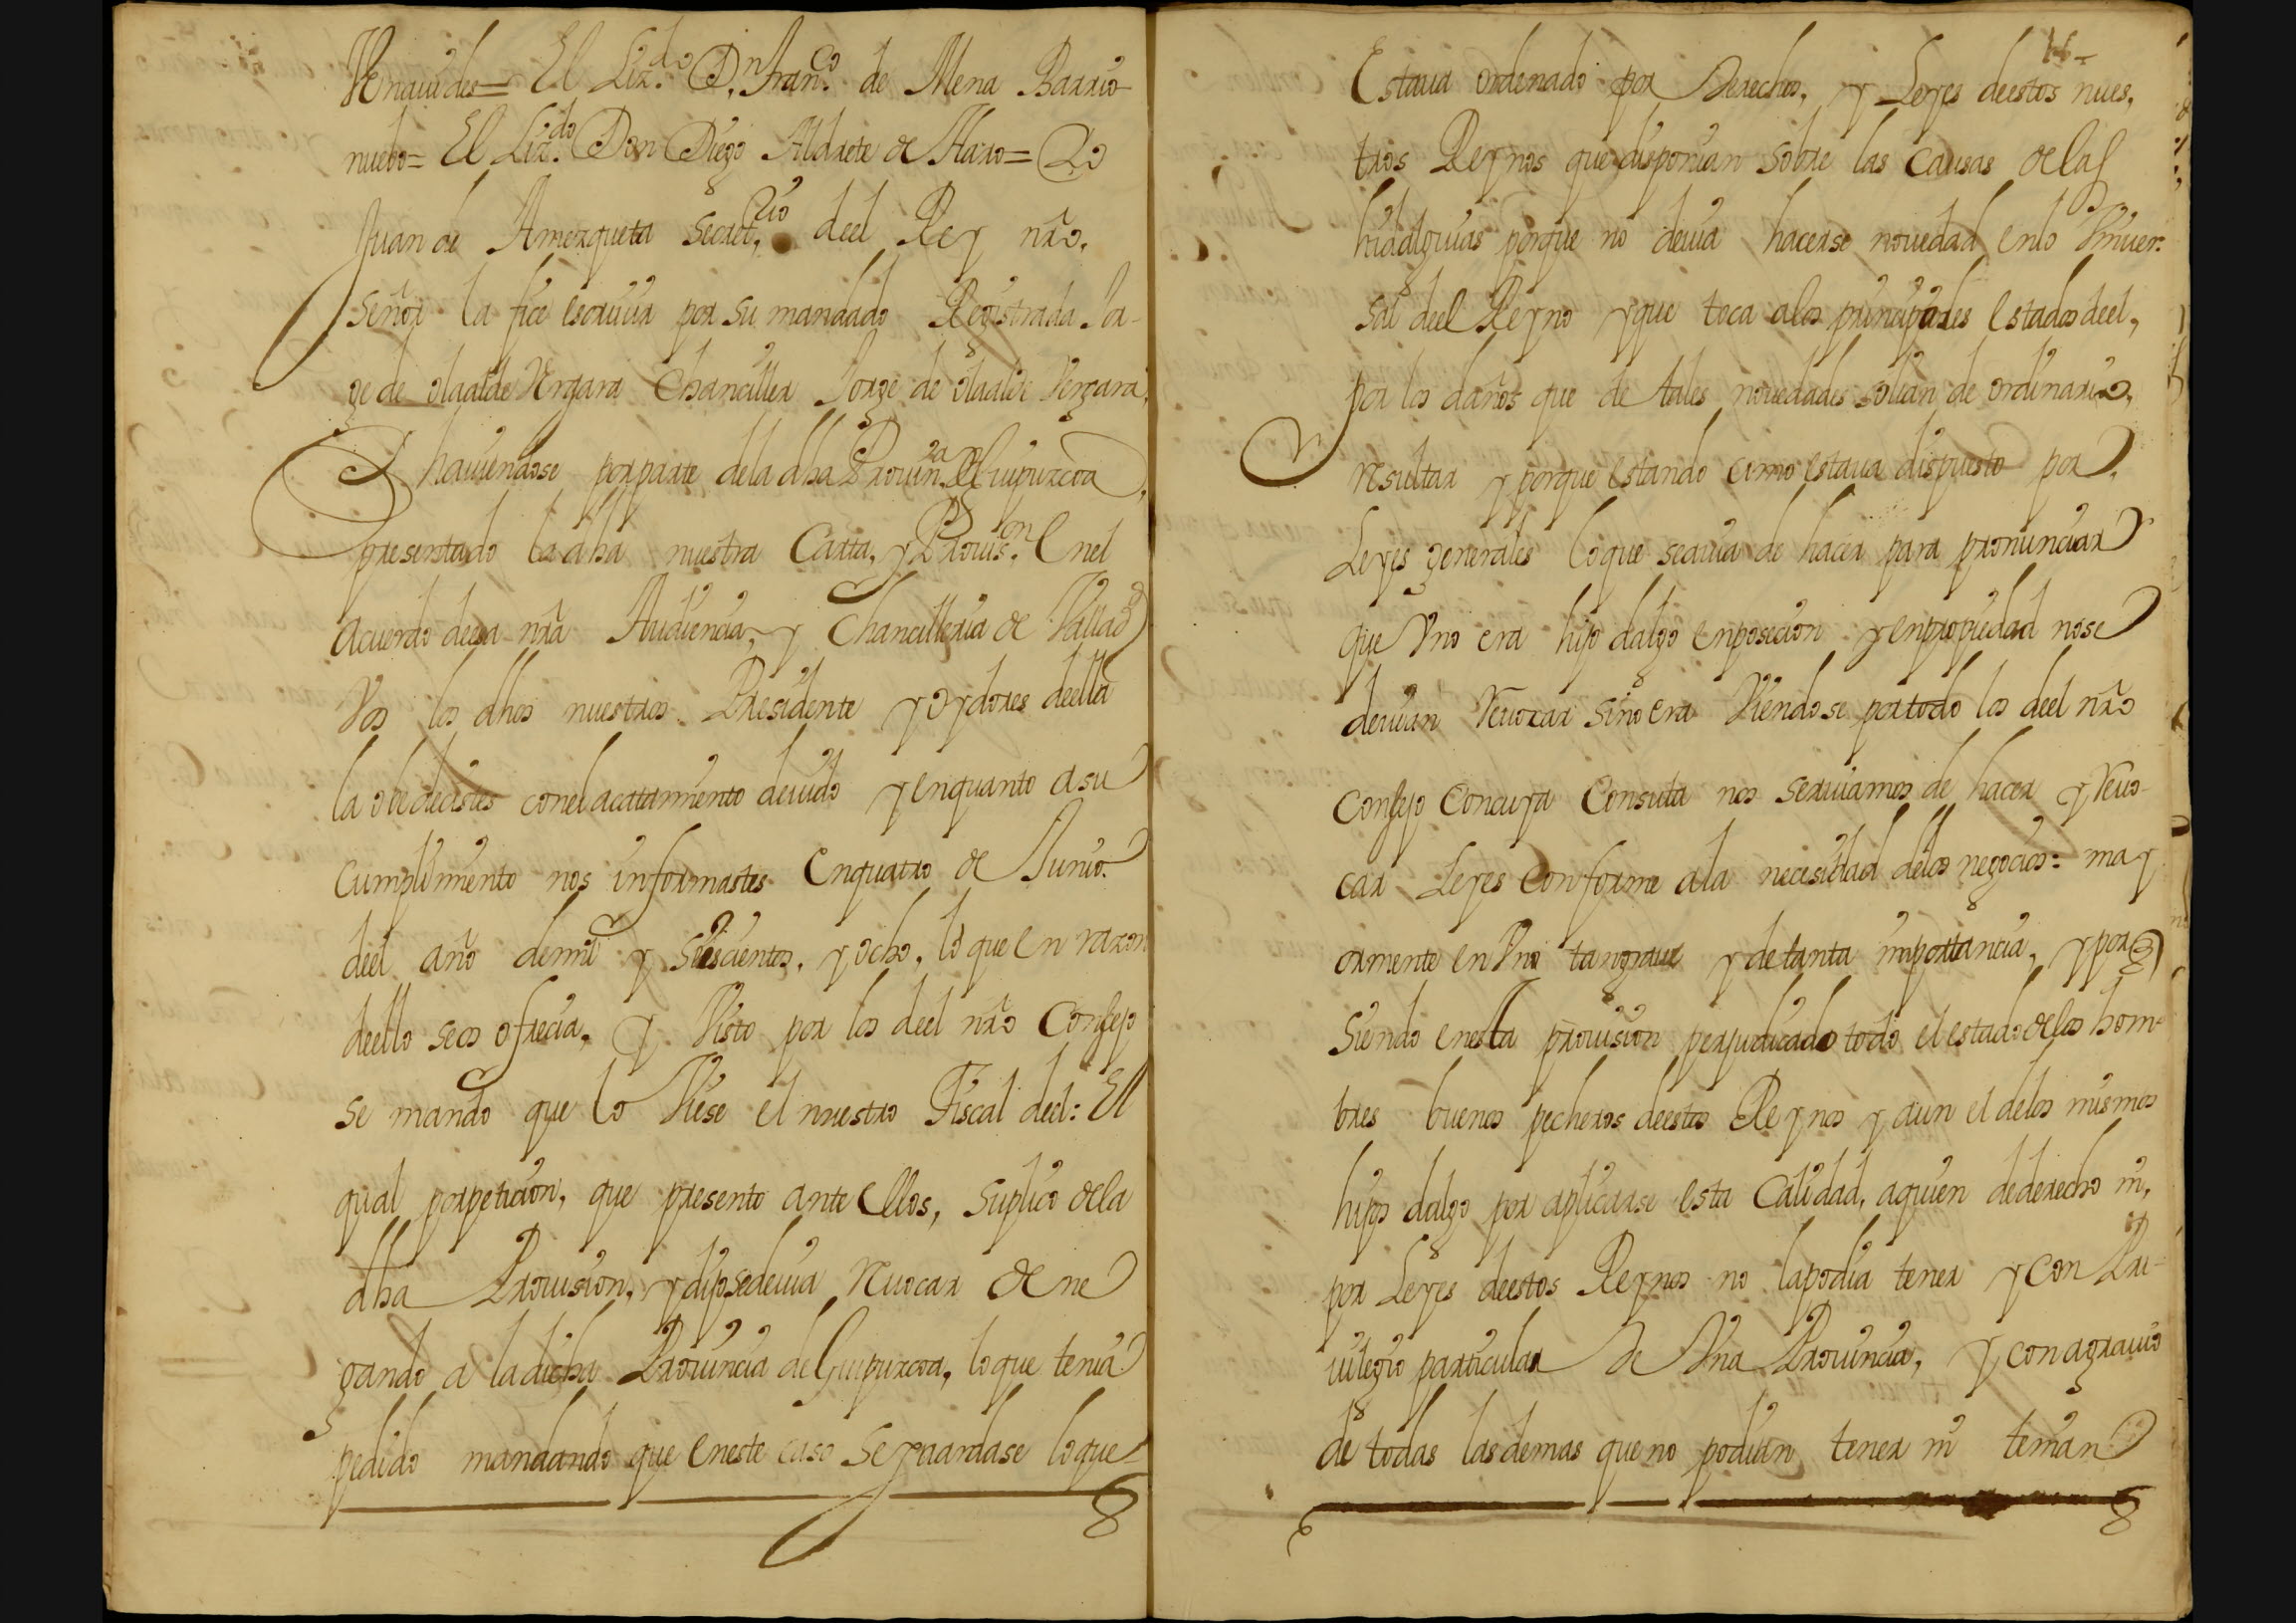 Venauides = El Liz.do D.n Fran.co de Mena Barrio-
nuebo = El Liz.do Don Diego Aldrete de Haro = Yo
Juan de Amezqueta Secret.rio deel Rey nrõ.
Señor la fice escriuir por su mandado Registrada Jor-
ge de olaalde Vergara Chanciller Jorge de olaalde Vergara,
Y hauiendose por parte de la dha Prouin.za de Guipuzcoa,
presentado la dha nuestra Carta, y Prouis.on Enel
acuerdo deesa nrã Audiencia, y Chancilleria de Vallad.d
Vos los dhos nuestros Presidente y oydores deella
la obedecistes conel acatamiento deuido y enquanto asu
Cumplimiento nos informastes Enquatro de Junio
deel año demil y seiscientos, y ocho, lo que En razon
deello seos ofrecia, Y Visto por los deel nrõ Consejo
se mando que lo Viese el nuestro Fiscal deel: El
qual porpeticion, que presento ante Ellos, Suplico dela
dha Prouision, y dijo sedeuia Reuocar De ne
gando a ladicha Prouincia de Guipuzcoa, lo que tenia
pedido mandando que Eneste caso Se guardase loque
14-
Estaua ordenado por Derechos, y Leyes deestos nues,
tros Reynos que disponian Sobre las Causas de las
hidalguias porque no deuia hacerse nouedad Enlo Vniuer-
sal deel Reyno yque toca alos principales Estados deel,
por los daños que de tales nouedades solian de ordinario,
Resultar y porque Estando como Estaua dispuesto por
Leyes generales loque seauia de hacer para pronunciar
que Vno era hijo dalgo Enposecion y enpropiedad nose
deuian Reuocar sino era Viendose portodo los deel nrõ
Consejo Concuya Consulta nos seruiamos de hacer y Reuo-
car Leyes Conforme ala necesidad delos negocios: may
ormente en Vno tangraue y detanta importancia, y por
Siendo Enesta prouision perjudicado todo el estado delos hom-
bres buenos pecheros deestos Reynos y aun el delos mismos
hijos dalgo por aplicarse Esta Calidad, aquien dederecho ni,
por Leyes deestos Reynos no lapodia tener y Con Pri-
uilegio particular de Vna Prouincia, Y conagrauio
de todas lasdemas que no podian tener ni tenian